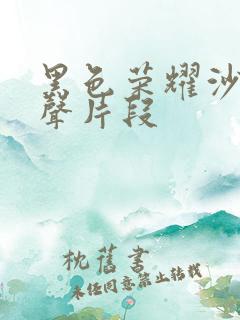 黑色荣耀沙
聲片段
枕舊書
未经同意禁止转载